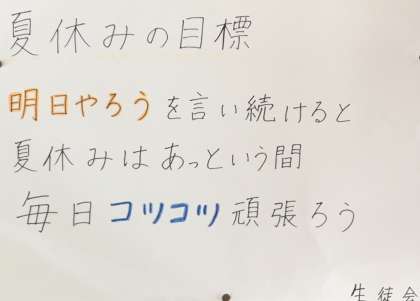 夏休みの目標
明日やろうを言い続けると
夏休みはあっという間
毎日コツコツ頑張ろう
生徒会